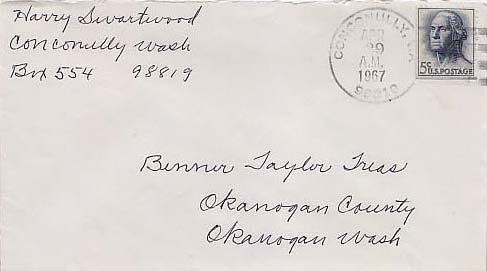 Harry Swartwood
Conconully Wash
Box 554 98819
CONCONULLY, WA
APR
29
A.M.
1967
98819
5¢ U.S. POSTAGE
Benner Taylor Treas
Okanogan County
Okanogan Wash